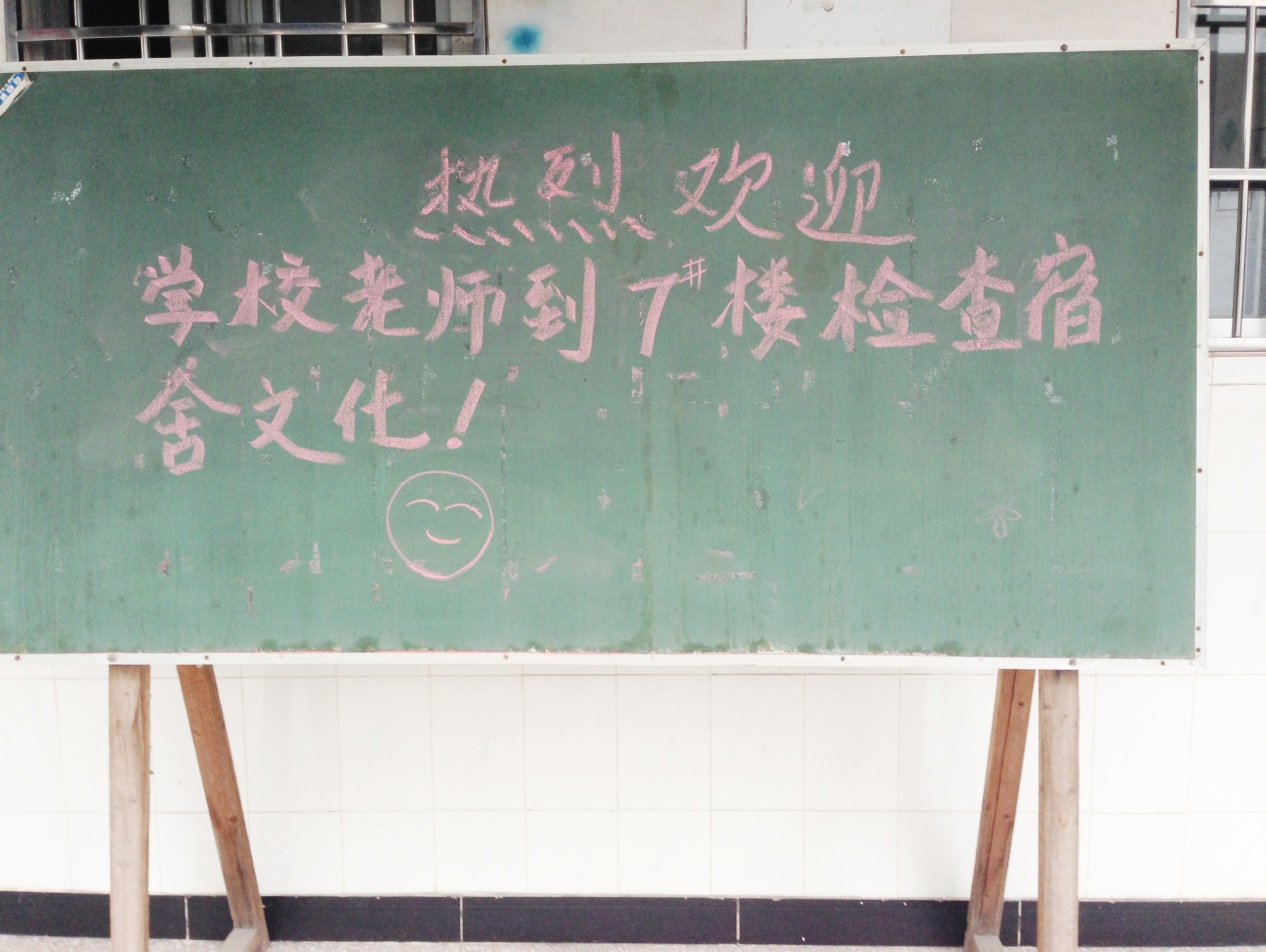 热烈欢迎
学校老师到7#楼检查宿
舍文化!